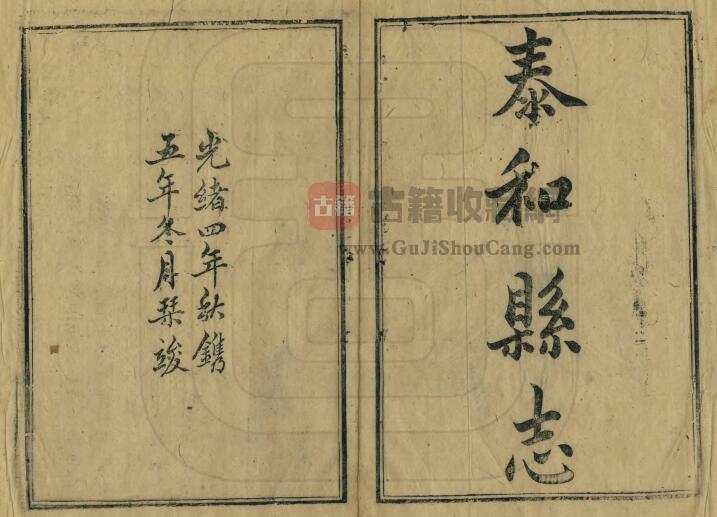 泰和縣志
光緒四年秋鐫
五年冬月栞竣
古籍
古籍收藏網
www.GuJiShouCang.com